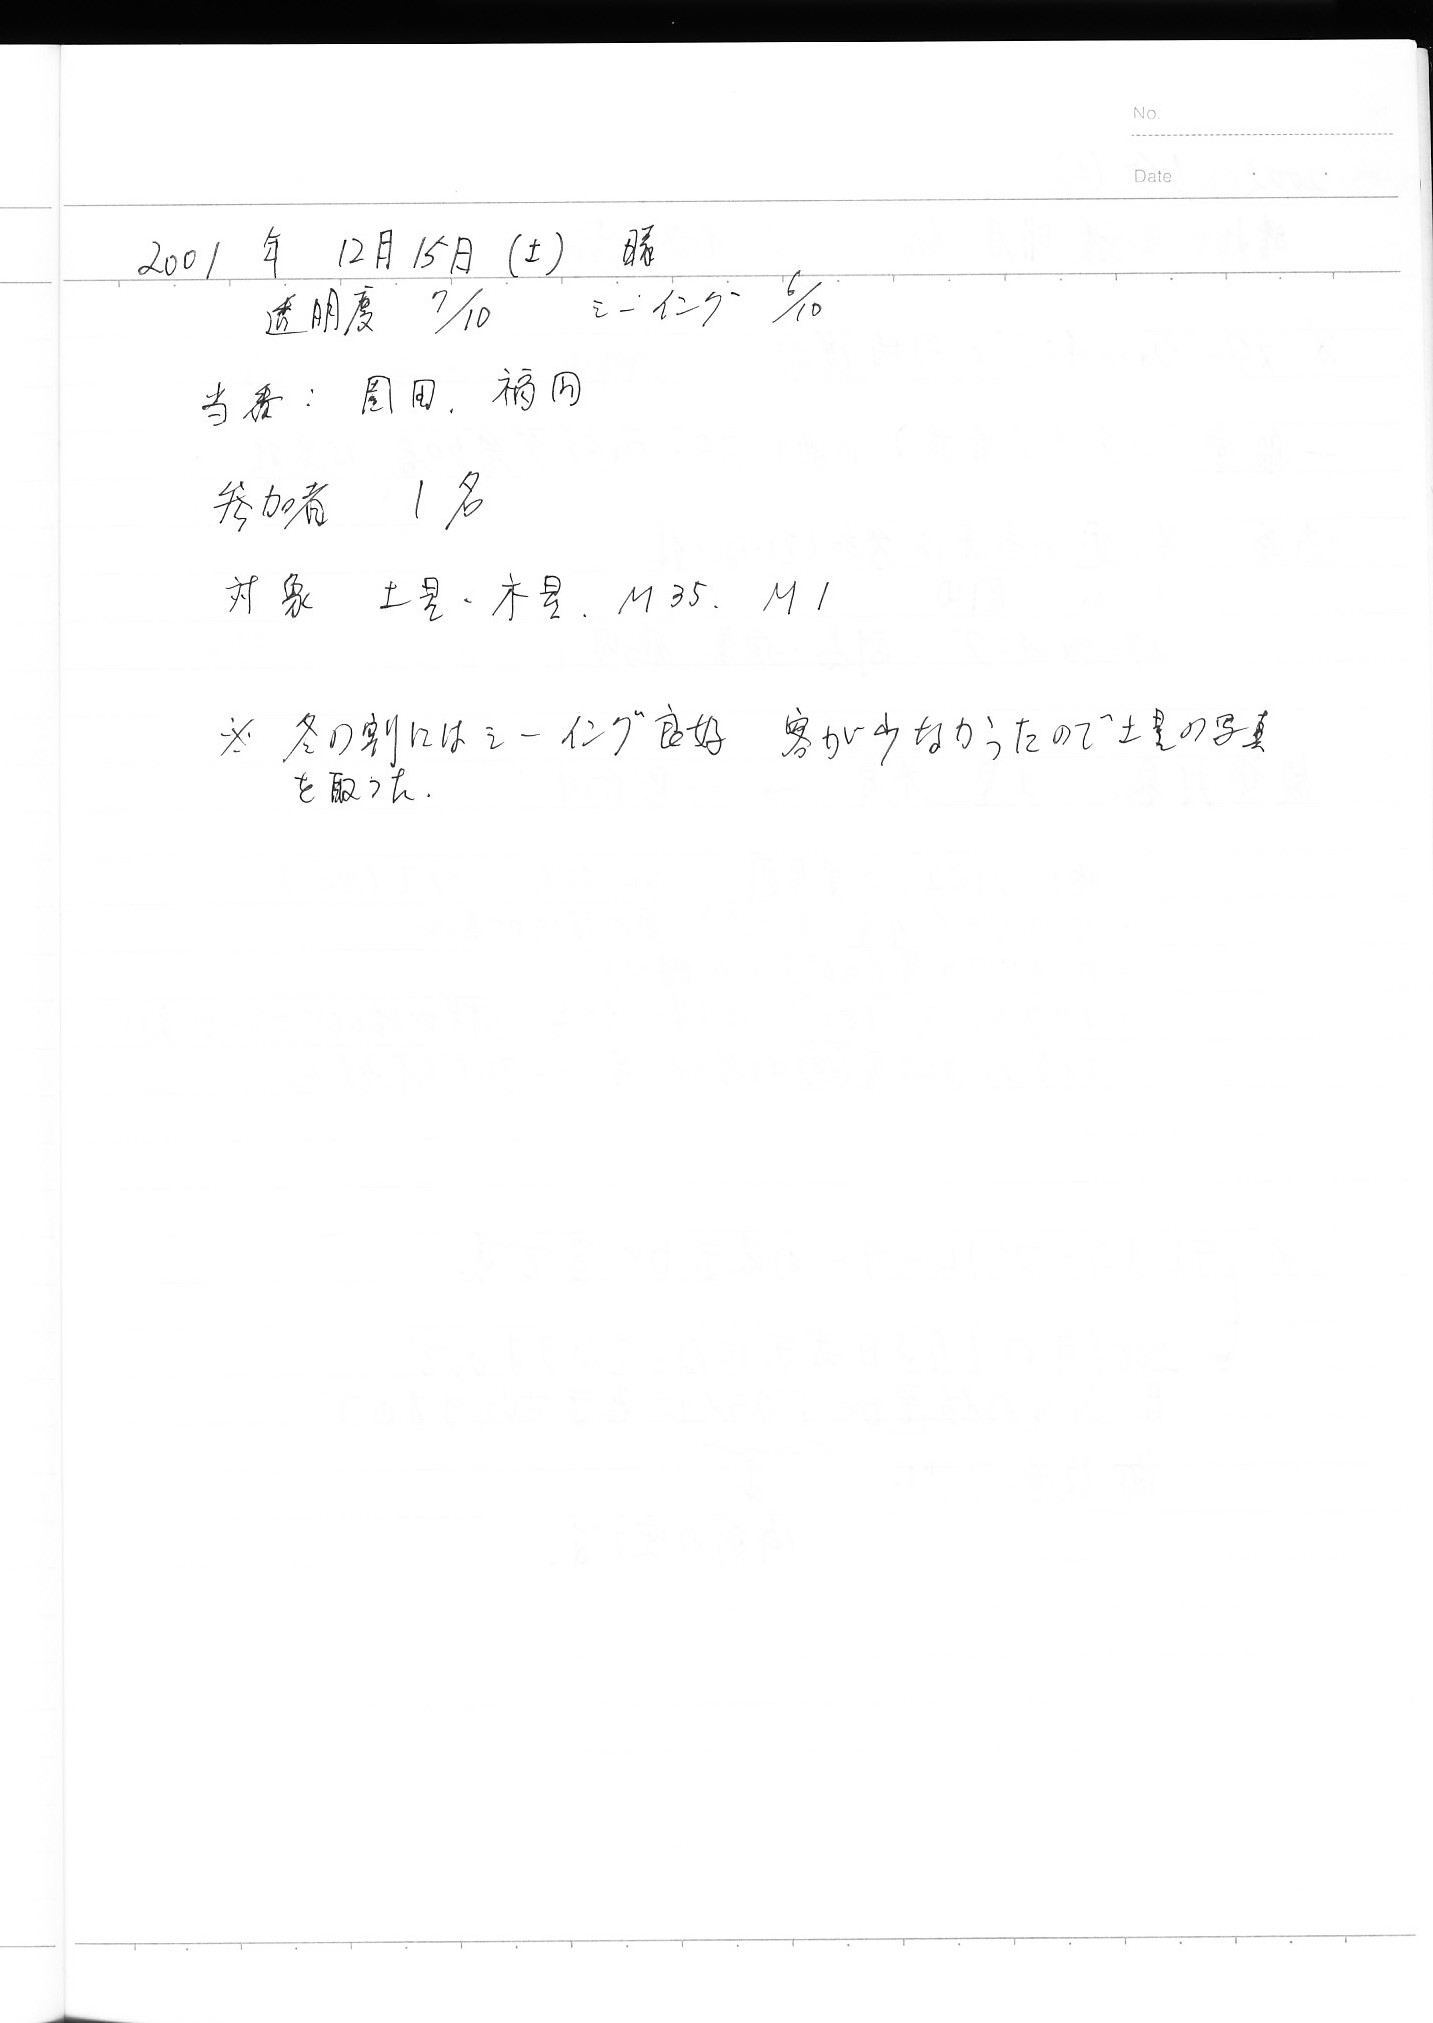 No.
Date
2001 年 12月15日 (土) 曇
透明度 7/10 シーイング 6/10
当番: 園田、福岡
参加者 1名
対象 土星、木星、M35、M1
※ 冬の割にはシーイング良好 客が少なかったので土星の写真
を取った.